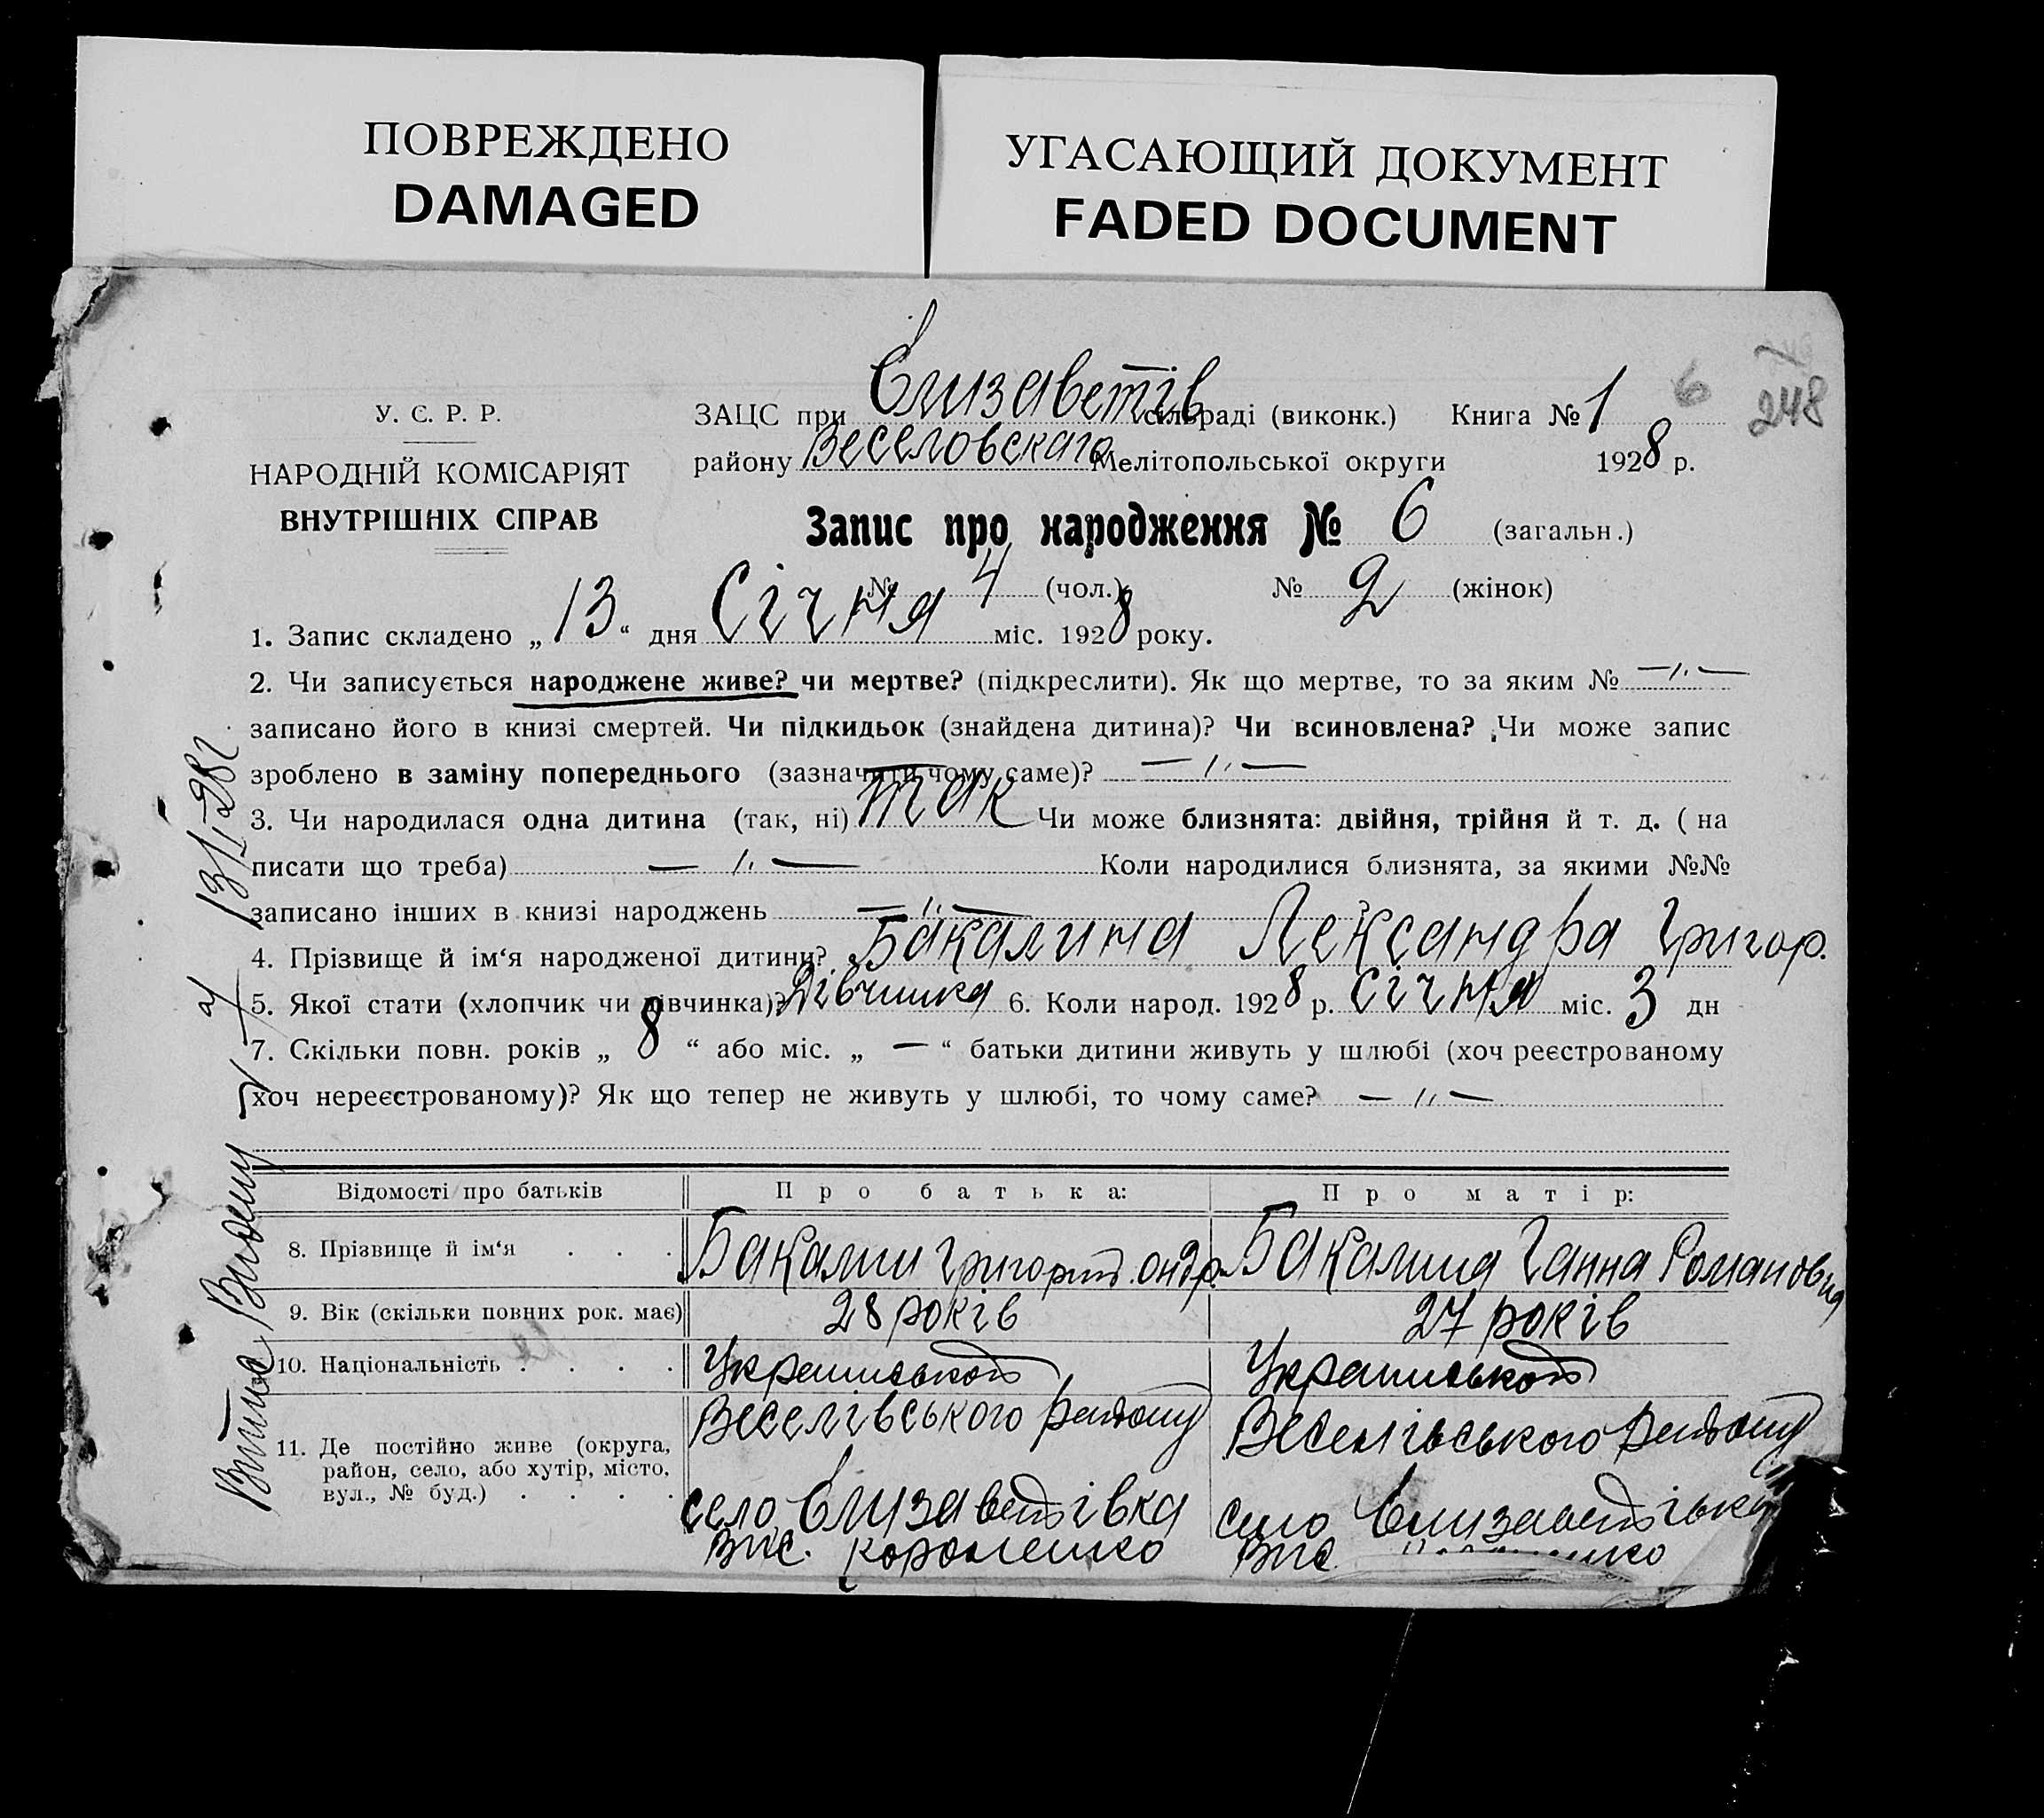 ПОВРЕЖДЕНО
DAMAGED
УГАСАЮЩИЙ ДОКУМЕНТ
FADED DOCUMENT
6
248
У. Є. Р. Р.
НАРОДНІЙ КОМІСАРІЯТ
ВНУТРІШНІХ СПРАВ
ЗАЦС при Єлизаветів сільраді (виконк.) Книга № 1
району Веселовскаго Мелітопольської округи 1928 р.
Запис про народження № 6 (загальн.)
№ 4 (чол.) № 2 (жінок)
1. Запис складено „13“ дня Січня міс. 1928 року.
2. Чи записується народжене живе? чи мертве? (підкреслити). Як що мертве, то за яким № —„—
записано його в книзі смертей. Чи підкидьок (знайдена дитина)? Чи всиновлена? Чи може запис
зроблено в заміну попереднього (зазначити чому саме)? —„—
3. Чи народилася одна дитина (так, ні) так Чи може близнята: двійня, трійня й т. д. ( на
писати що треба) —„— Коли народилися близнята, за якими №№
записано інших в книзі народжень —„— ?
4. Прізвище й ім‘я народженої дитини? Бакалина Лександра Григор.
5. Якої стати (хлопчик чи дівчинка)? Дівчинка 6. Коли народ. 1928 р. січня міс. 3 дн
7. Скільки повн. років „ 8 “ або міс. „ — “ батьки дитини живуть у шлюбі (хоч реєстрованому
хоч нереєстрованому)? Як що тепер не живуть у шлюбі, то чому саме? —„—
Відомості про батьків Про батька: Про матір:
8. Прізвище й ім‘я . . . Бакалин Григорій Ондр. Бакалина Ганна Романовна
9. Вік (скільки повних рок. має) 28 років 27 років
10. Національність . . . . Української Української
11. Де постійно живе (округа, район, село, або хутір, місто, вул., № буд.) . . . .
Веселівського району Веселівського району
село Єлизаветівка село Єлизаветівка
Вис. Короленко Вис.
Витяг Видано 13/I-28 г